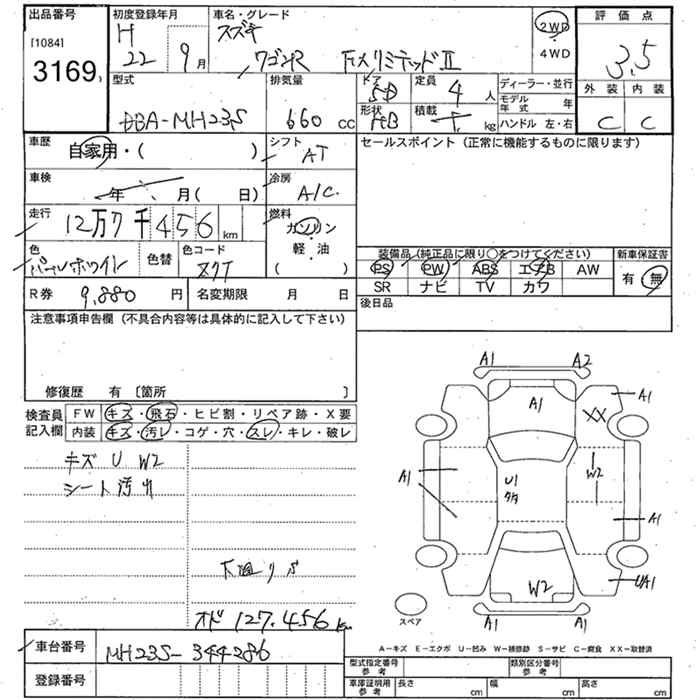 出品番号
[1084]
3169
初度登録年月
H
22 9月
車名・グレード
スズキ
ワゴンR FXリミテッドⅡ
2WD
・
4WD
評価点
3.5
外装 内装
C C
型式
DBA-MH23S
排気量
660 cc
ドア
5D
形状
HB
定員
4 人
積載
kg
ディーラー・並行
モデル年式 年
ハンドル 左・右
車歴
自家用・( )
シフト
AT
車検
年 月( 日)
冷房
A/C
走行
12万7千456km
燃料
ガソリン
・
軽・油
( )
色
パールホワイト
色替
色コード
ZQT
R券 9,880円
名変期限 月 日
セールスポイント(正常に機能するものに限ります)
装備品(純正品に限り○をつけてください)
PS PW ABS エアB AW
SR ナビ TV カワ
新車保証書
有・無
後日品
注意事項申告欄(不具合内容等は具体的に記入して下さい)
修復歴 有〔箇所 〕
検査員
記入欄
FW キズ・飛石・ヒビ割・リペア跡・X要
内装 キズ・汚レ・コゲ・穴・スレ・キレ・破レ
キズ U W2
シート汚れ
下廻りS
オド 127.456km
A1 A2
A1
A1
XX
A1
U1
W2
A1
UA1
W2
A1 A1
スペア
A-キズ E-エクボ U-凹み W-補修跡 S-サビ C-腐食 XX-取替済
車台番号 MH23S-344286
登録番号
型式指定番号
参考
類別区分番号
参考
車庫証明用
参考
長さ cm
幅 cm
高さ cm